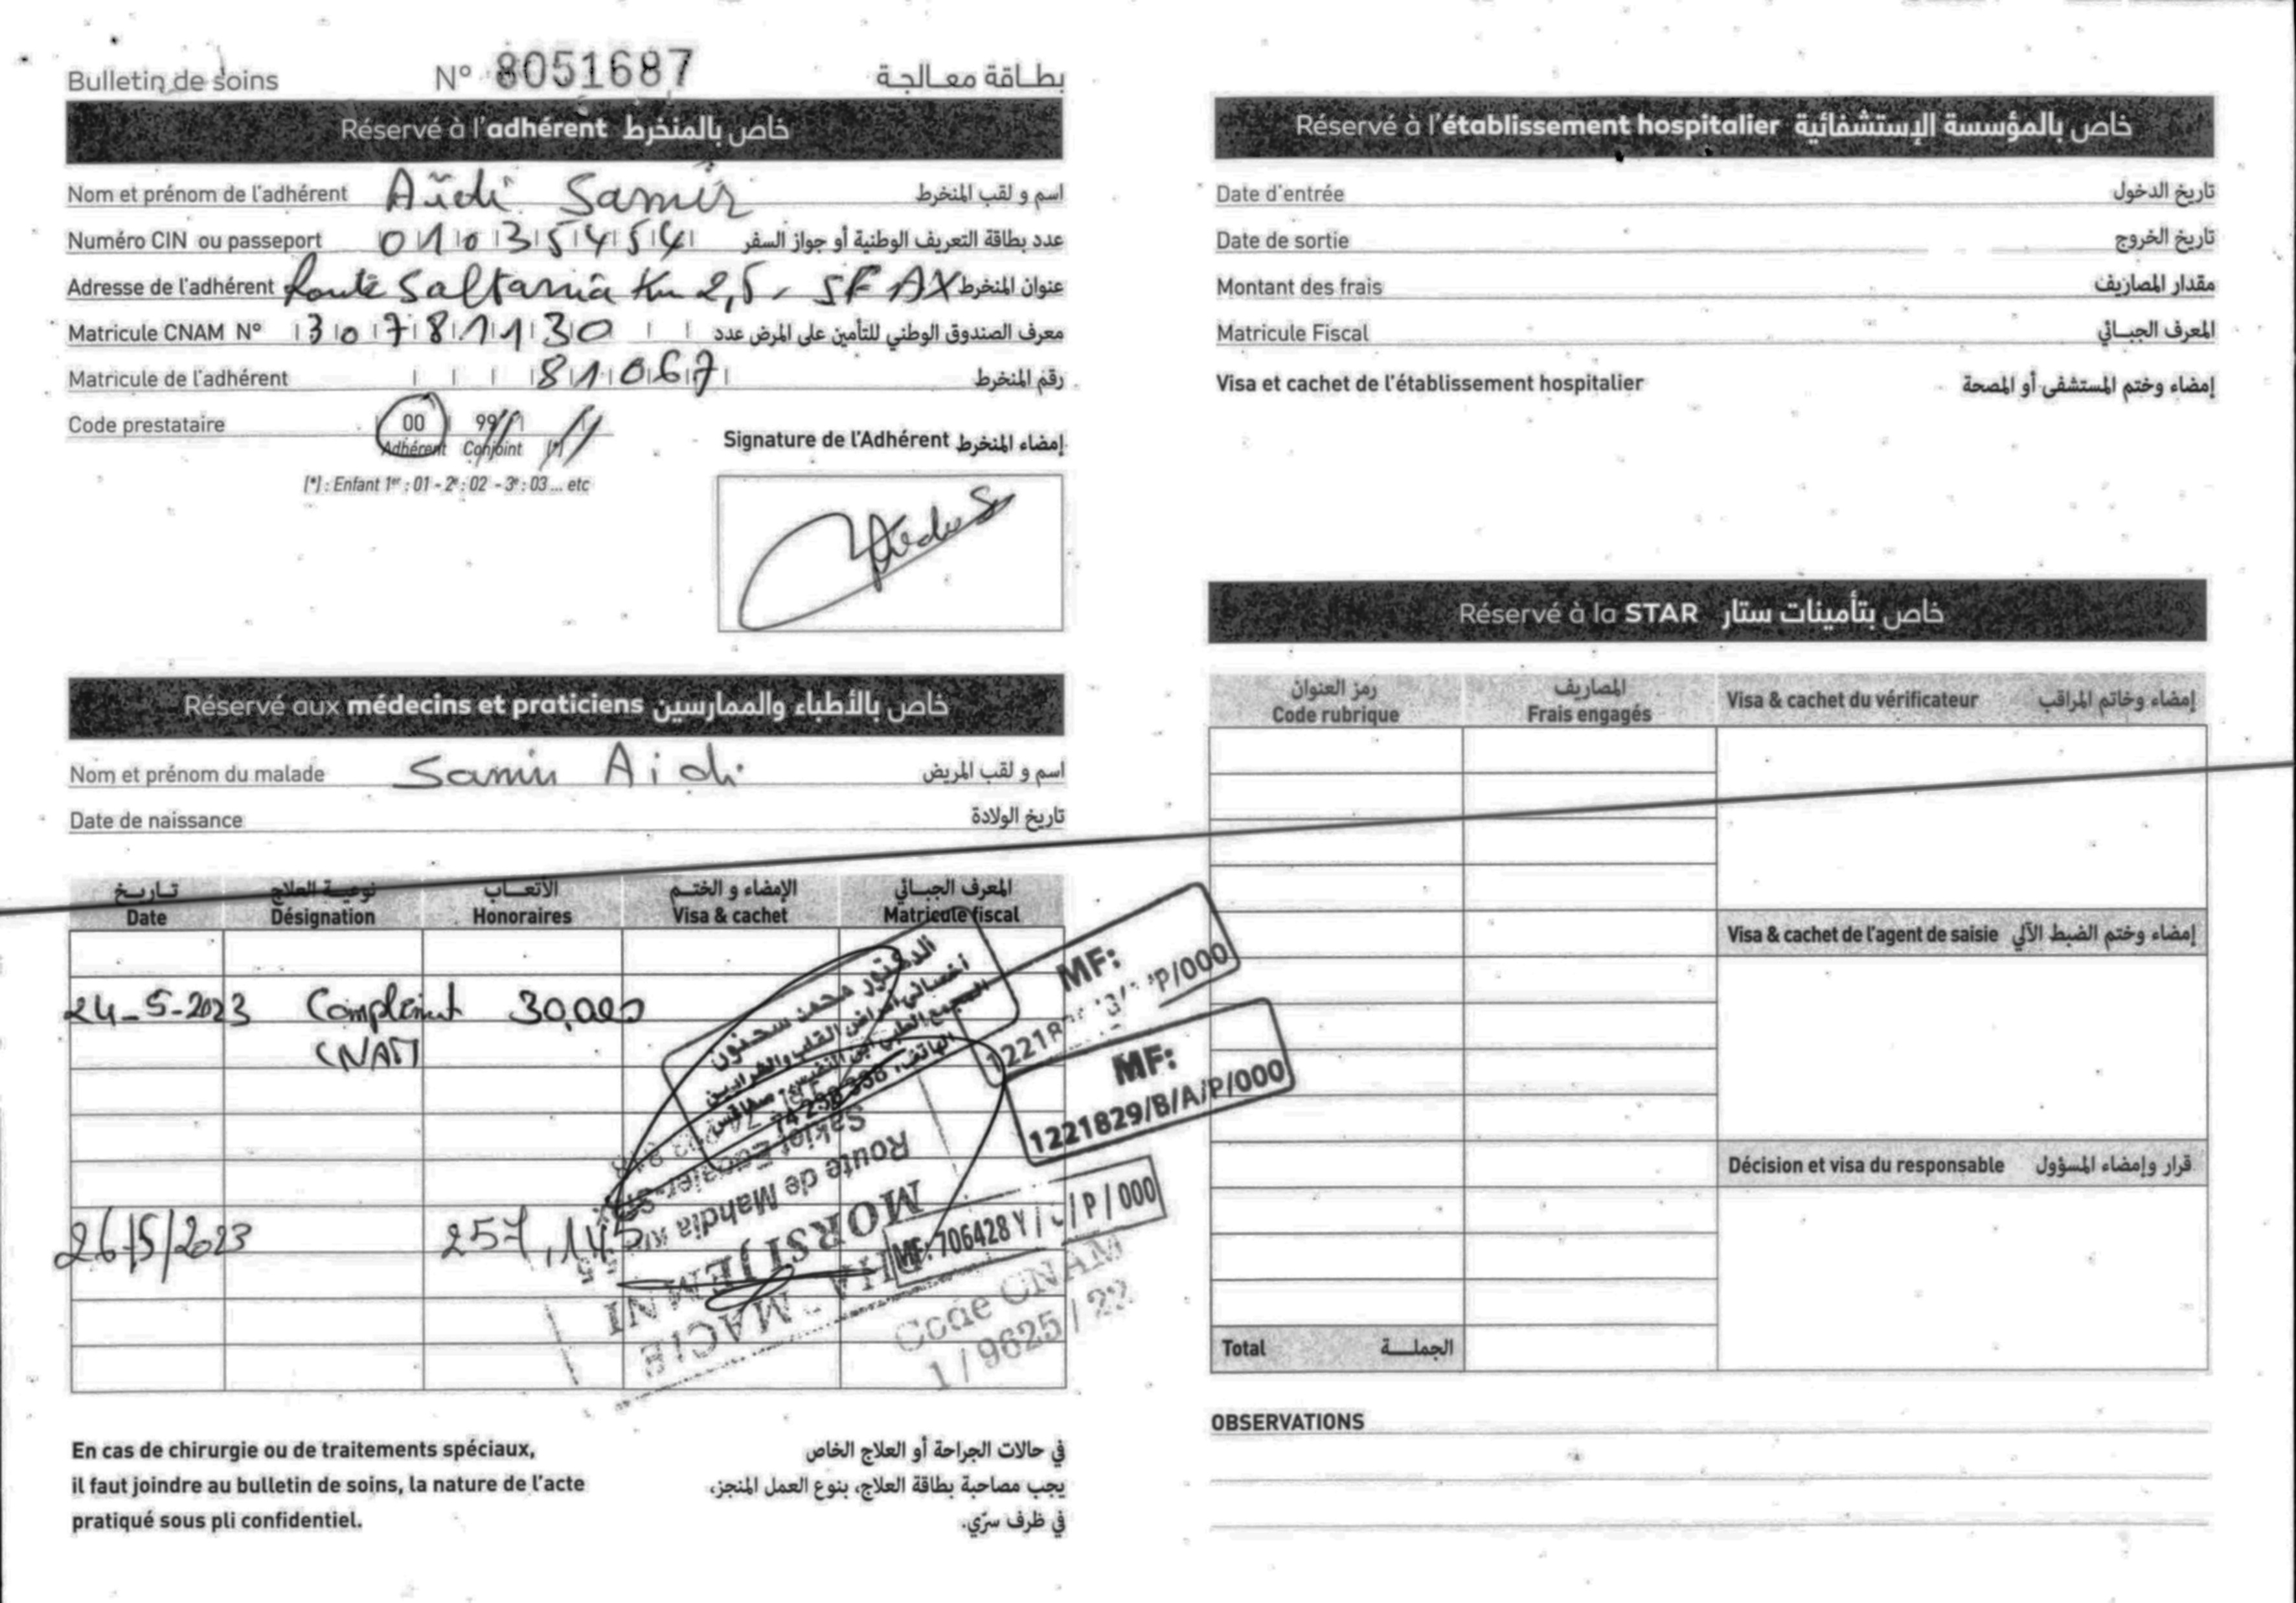 Bulletin de soins N° 8051687 بطاقة معالجة
Réservé à l'adhérent خاص بالمنخرط
Nom et prénom de l'adhérent Aïdi Samir اسم و لقب المنخرط
Numéro CIN ou passeport 01035454 عدد بطاقة التعريف الوطنية أو جواز السفر
Adresse de l'adhérent Route Saltania Km 2,5, SFAX عنوان المنخرط
Matricule CNAM N° 307811130 معرف الصندوق الوطني للتأمين على المرض عدد
Matricule de l'adhérent 81067 رقم المنخرط
Code prestataire 00 99
Adhérent Conjoint (*)
(*) : Enfant 1er : 01 - 2e : 02 - 3e : 03 ... etc
Signature de l'Adhérent إمضاء المنخرط
Réservé aux médecins et praticiens خاص بالأطباء والممارسين
Nom et prénom du malade Samir Aidi اسم و لقب المريض
Date de naissance تاريخ الولادة
تاريخ نوعية العلاج الأتعاب الإمضاء و الختم المعرف الجبائي
Date Désignation Honoraires Visa & cachet Matricule fiscal
24-5-2023 Complément 30,000
CNAM
الدكتور محمد سحنون
أخصائي أمراض القلب والشرايين
المجمع الطبي ابن النفيس - صفاقس
الهاتف: 74 298 398
MF:
P/000
MF:
1221829/B/A/P/000
26/5/2023 257,145
Route de Mahdia
MORSI JEMNI
MF: 706428 Y / P / 000
Code CNAM
1 / 9625 / 22
En cas de chirurgie ou de traitements spéciaux,
il faut joindre au bulletin de soins, la nature de l'acte
pratiqué sous pli confidentiel.
في حالات الجراحة أو العلاج الخاص
يجب مصاحبة بطاقة العلاج، بنوع العمل المنجز،
في ظرف سرّي.
Réservé à l'établissement hospitalier خاص بالمؤسسة الإستشفائية
Date d'entrée تاريخ الدخول
Date de sortie تاريخ الخروج
Montant des frais مقدار المصاريف
Matricule Fiscal المعرف الجبائي
Visa et cachet de l'établissement hospitalier إمضاء وختم المستشفى أو المصحة
Réservé à la STAR خاص بتأمينات ستار
رمز العنوان المصاريف
Code rubrique Frais engagés Visa & cachet du vérificateur إمضاء وخاتم المراقب
Visa & cachet de l'agent de saisie إمضاء وختم الضبط الآلي
Décision et visa du responsable قرار وإمضاء المسؤول
Total الجملة
OBSERVATIONS